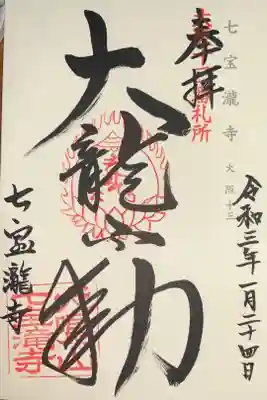 七宝瀧寺 大阪十三
奉拝
札所
令和三年一月二十四日
大龍不動
七宝瀧寺
犬鳴山
七宝滝寺